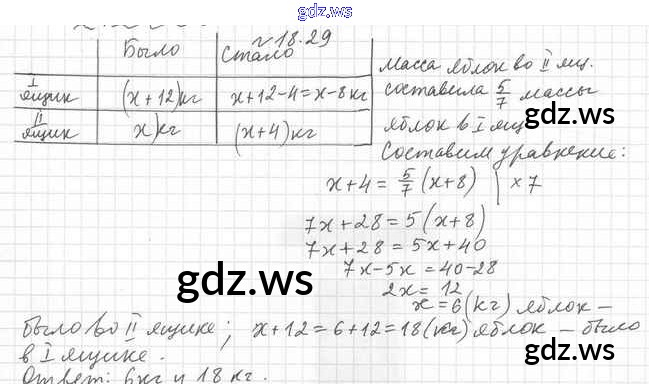 gdz.ws
№18.29
Было Стало
I ящик (x+12)кг x+12-4=x-8кг
II ящик x)кг (x+4)кг
Масса яблок во II ящ.
составила 5/7 массы
яблок в I ящ
gdz.ws
Составим уравнение:
x+4=5/7(x+8) | ×7
7x+28=5(x+8)
7x+28=5x+40
7x-5x=40-28
gdz.ws
2x=12
x=6(кг) яблок –
было во II ящике; x+12=6+12=18(кг) яблок – было
в I ящике.
gdz.ws
Ответ: 6кг и 18 кг.